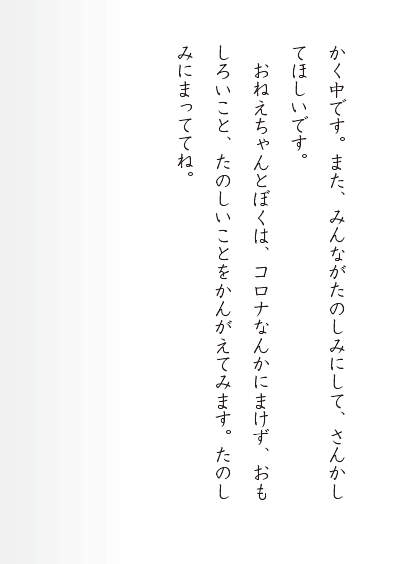 かく中です。また、みんながたのしみにして、さんかし
てほしいです。
　おねえちゃんとぼくは、コロナなんかにまけず、おも
しろいこと、たのしいことをかんがえてみます。たのし
みにまっててね。